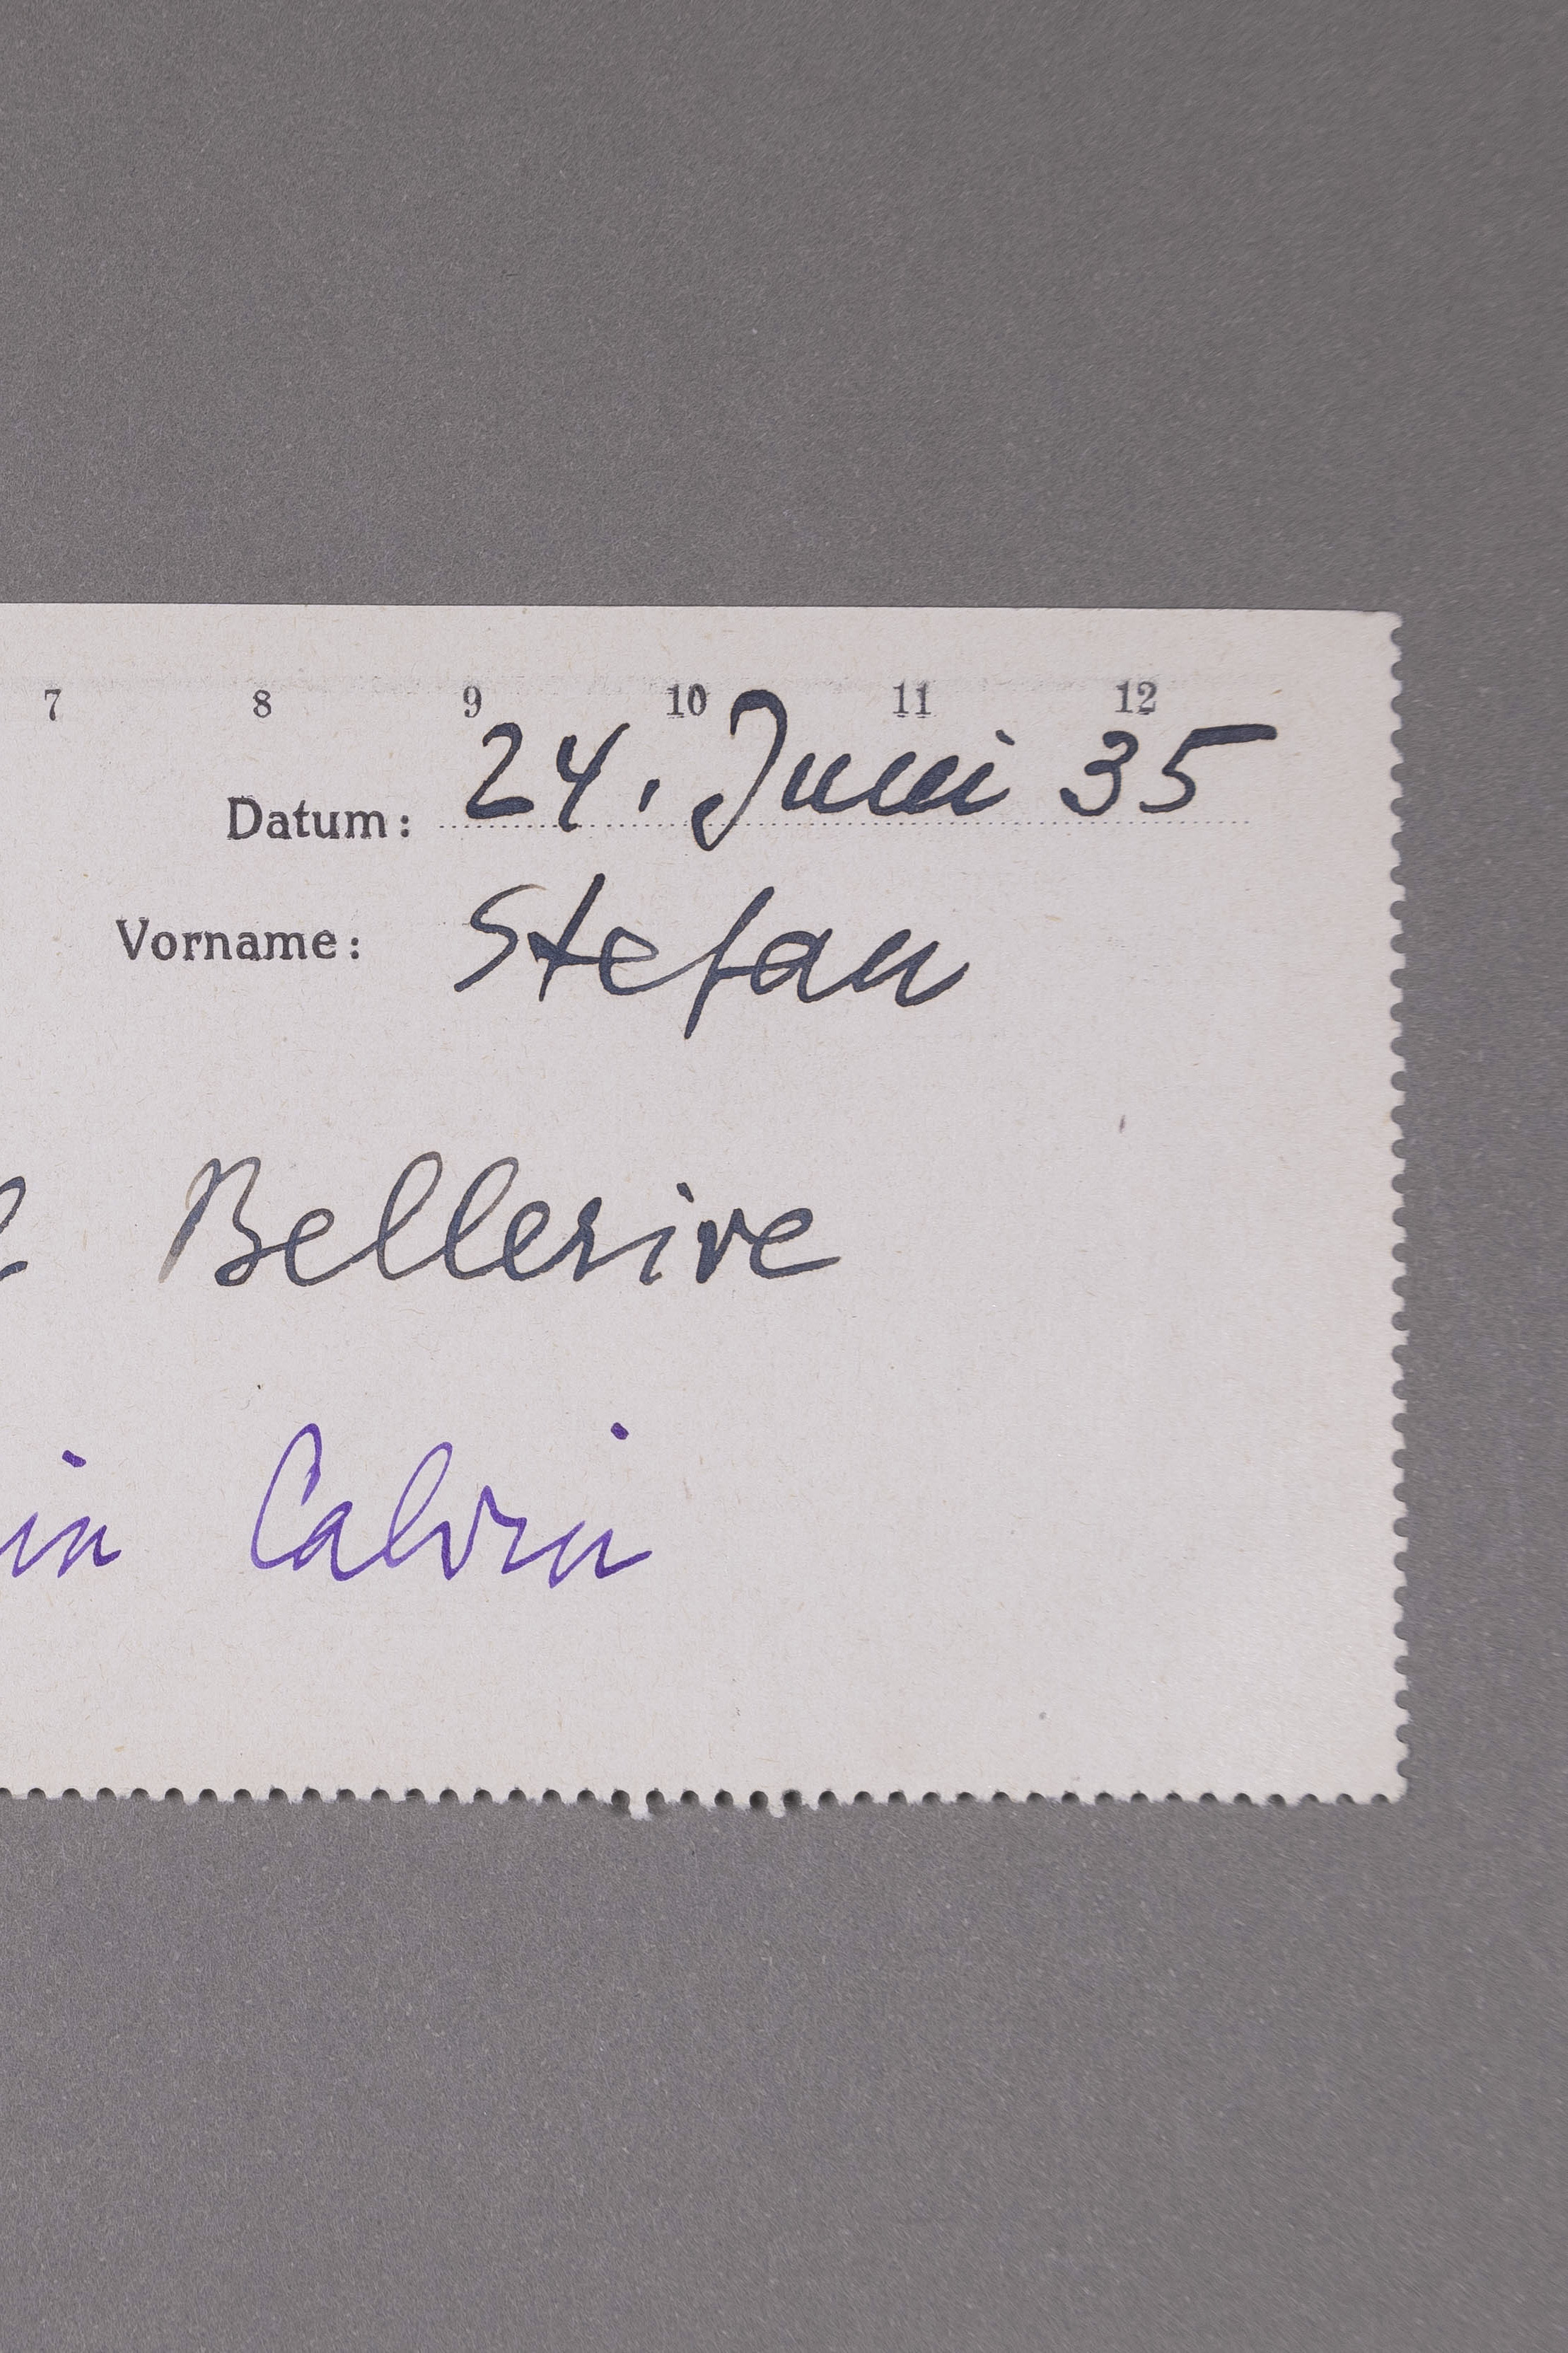 7 8 9 10 11 12
Datum: 24. Juni 35
Vorname: Stefan
Bellerive
in Calvin